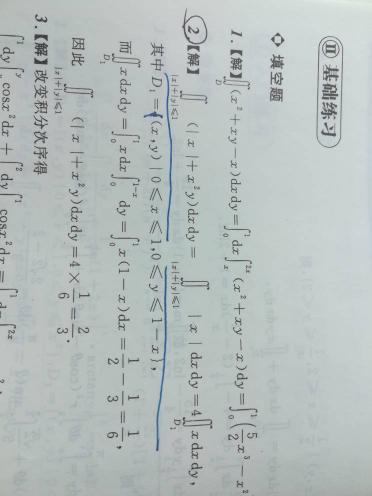 Ⅱ 基础练习
◇ 填空题
1.【解】∬_D (x²+xy-x)dxdy=∫₀¹dx∫ₓ²ˣ(x²+xy-x)dy=∫₀¹(5/2 x³-x²
2.【解】∬_{|x|+|y|≤1} (|x|+x²y)dxdy=∬_{|x|+|y|≤1} |x|dxdy=4∬_{D₁} xdxdy,
其中 D₁={(x,y)|0≤x≤1,0≤y≤1-x},
而∬_{D₁} xdxdy=∫₀¹xdx∫₀¹⁻ˣdy=∫₀¹x(1-x)dx=1/2-1/3=1/6,
因此 ∬_{|x|+|y|≤1} (|x|+x²y)dxdy=4×1/6=2/3.
3.【解】改变积分次序得
∫₀¹dy cosx²dx+ dy cosx²dx=